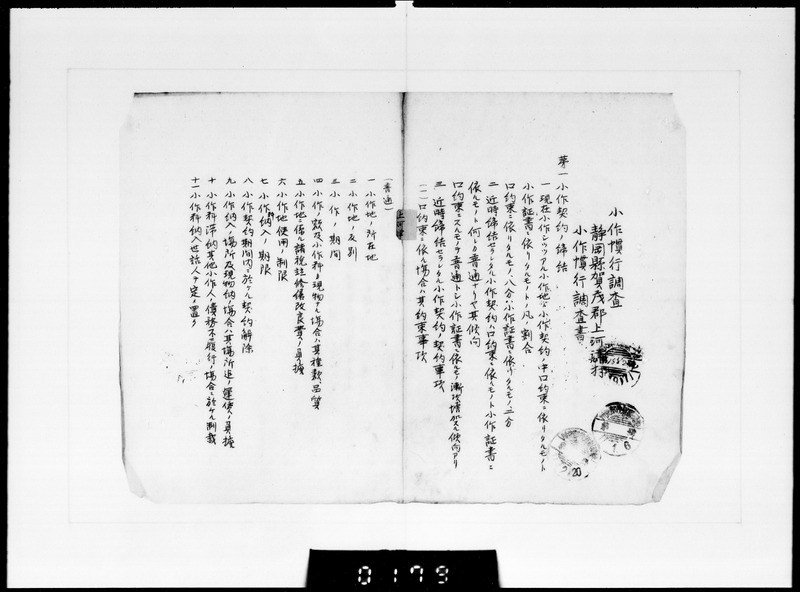 小作慣行調査
静岡縣賀茂郡上河津村
小作慣行調査書
第一 小作契約ノ締結
一 現在小作シツツアル小作地ノ小作契約ノ中口約束ニ依リタルモノト
小作証書ニ依リタルモノトノ凡ノ割合
口約束ニ依リタルモノ八分小作証書ニ依リタルモノ二分
二 近時締結セラレタル小作契約ハ口約束ニ依ルモノト小作証書ニ
依ルモノト何レカ普通ナリヤ其傾向
口約束ニスルモノヲ普通トシ小作証書ニ依ルモノ漸次増加スル傾向アリ
三 近時締結セラレタル小作契約ノ契約事項
(一)口約束ニ依ル場合ハ其約束事項
上河津
(普通)
一 小作地ノ所在地
二 小作地ノ反別
三 小作ノ期間
四 小作ノ額及小作料カ現物ナル場合ハ其種類、品質
五 小作地ニ係ル諸税並修繕改良費ノ負擔
六 小作地使用ノ制限
七 小作料納入ノ期限
八 小作契約期間内ニ於ケル契約解除
九 小作納入ノ場所及現物納ノ場合ハ其場所迄ノ運使ノ負擔
十 小作料滞納其他小作人ノ債務不履行ノ場合ニ於ケル制裁
十一 小作料納入世話人ヲ定メ置ク
0179